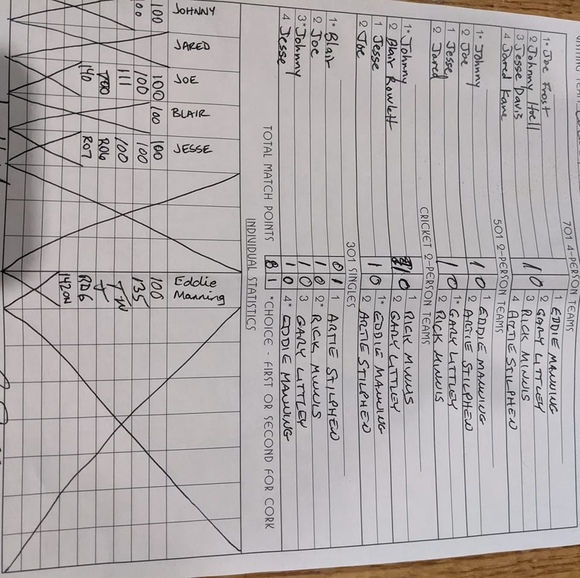 VISITING TEAM
701 4-PERSON TEAMS
1* Joe Frost 1 EDDIE MANNING
2 Johnny Hell 1 0 2 GARY LITTLEY
3 Jesse Davis 3 RICK MINNIS
4 Jared Kane 4 ARTIE STILPHEN
501 2-PERSON TEAMS
1* Johnny 1 0 1 EDDIE MANNING
2 Joe 2 ARTIE STILPHEN
1 Jesse 1 0 1* GARY LITTLEY
2 Jared 2 RICK MINNIS
CRICKET 2-PERSON TEAMS
1* Johnny 1 0 1 RICK MINNIS
2 Blair Rowlett 2 GARY LITTLEY
1 Jesse 1 0 1* EDDIE MANNING
2 Joe 2 ARTIE STILPHEN
301 SINGLES
1* Blair 0 1 1 ARTIE STILPHEN
2 Joe 1 0 2* RICK MINNIS
3* Johnny 1 0 3 GARY LITTLEY
4 Jesse 1 0 4* EDDIE MANNING
TOTAL MATCH POINTS 8 1 *CHOICE - FIRST OR SECOND FOR CORK
INDIVIDUAL STATISTICS
JOHNNY JARED JOE BLAIR JESSE Eddie Manning
100 100 100 100 100
100 100 100 135
111 100
140 R06
R07 RD6